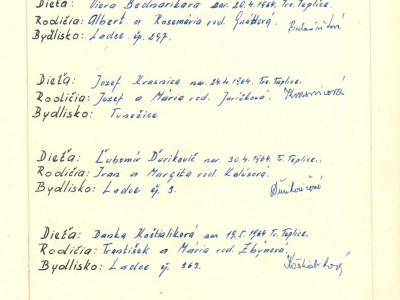 Dieťa: Viera Bednarikara nar. 20.4.1964. Tr. Teplice.
Rodičia: Albert a Rosemária rod.
Bydlisko: Ladce čp. 297.
Dieťa: Jozef Krasnica nar. 24.4.1964. Tr. Teplice.
Rodičia: Jozef a Mária rod. Juričková. Krasnicová
Bydlisko: Tunežice
Dieťa: Ľubomír Ďurikovič nar. 30.4.1964. T. Teplice.
Rodičia: Ivan a Margita rod. Kalusová.
Bydlisko: Ladce čp. 9.
Dieťa: Danka Koštialiková nar 19.5.1964 T. Teplice.
Rodičia: František a Mária rod. Zbýnová.
Bydlisko: Ladce čp. 363. Koštialiková